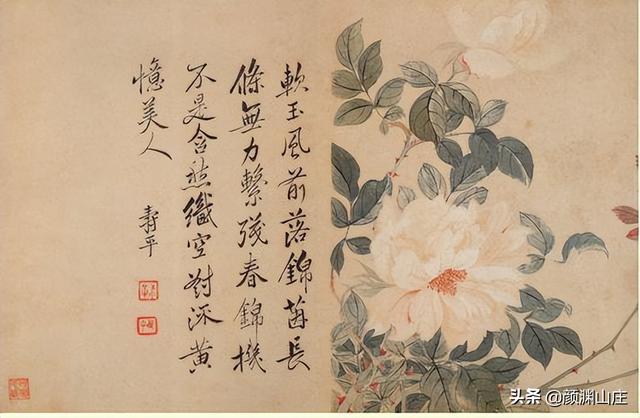 軟玉風前落錦茵長
條無力繫殘春錦機
不是含愁織空對流黃
憶美人
壽平
头条 @颜渊山庄